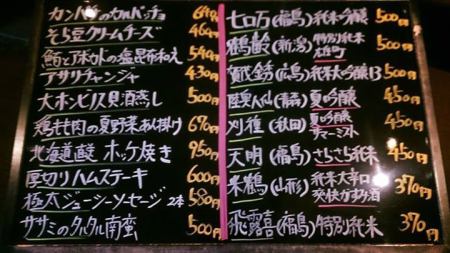 カンパチのカルパッチョ 640円
そら豆クリームチーズ 460円
鮪とアボカドの塩昆布和え 540円
アサリチャンジャ 430円
大ホンビノス貝酒蒸し 500円
鶏もも肉の夏野菜あん掛け 670円
北海道産 ホッケ焼き 950円
厚切りハムステーキ 600円
極太ジューシーソーセージ 2本 580円
ササミのタルタル南蛮 500円
七ロ万(福島)純米吟醸 500円
鶴齢(新潟)特別純米 雄町 500円
賀茂錦(広島)純米大吟醸13 500円
陸奥八仙(青森)夏吟醸 450円
刈穂(秋田)夏吟醸 サマーミスト 450円
天明(福島)さらさら純米 450円
米鶴(山形)純米大辛口 爽快かすみ酒 370円
飛露喜(福島)特別純米 370円